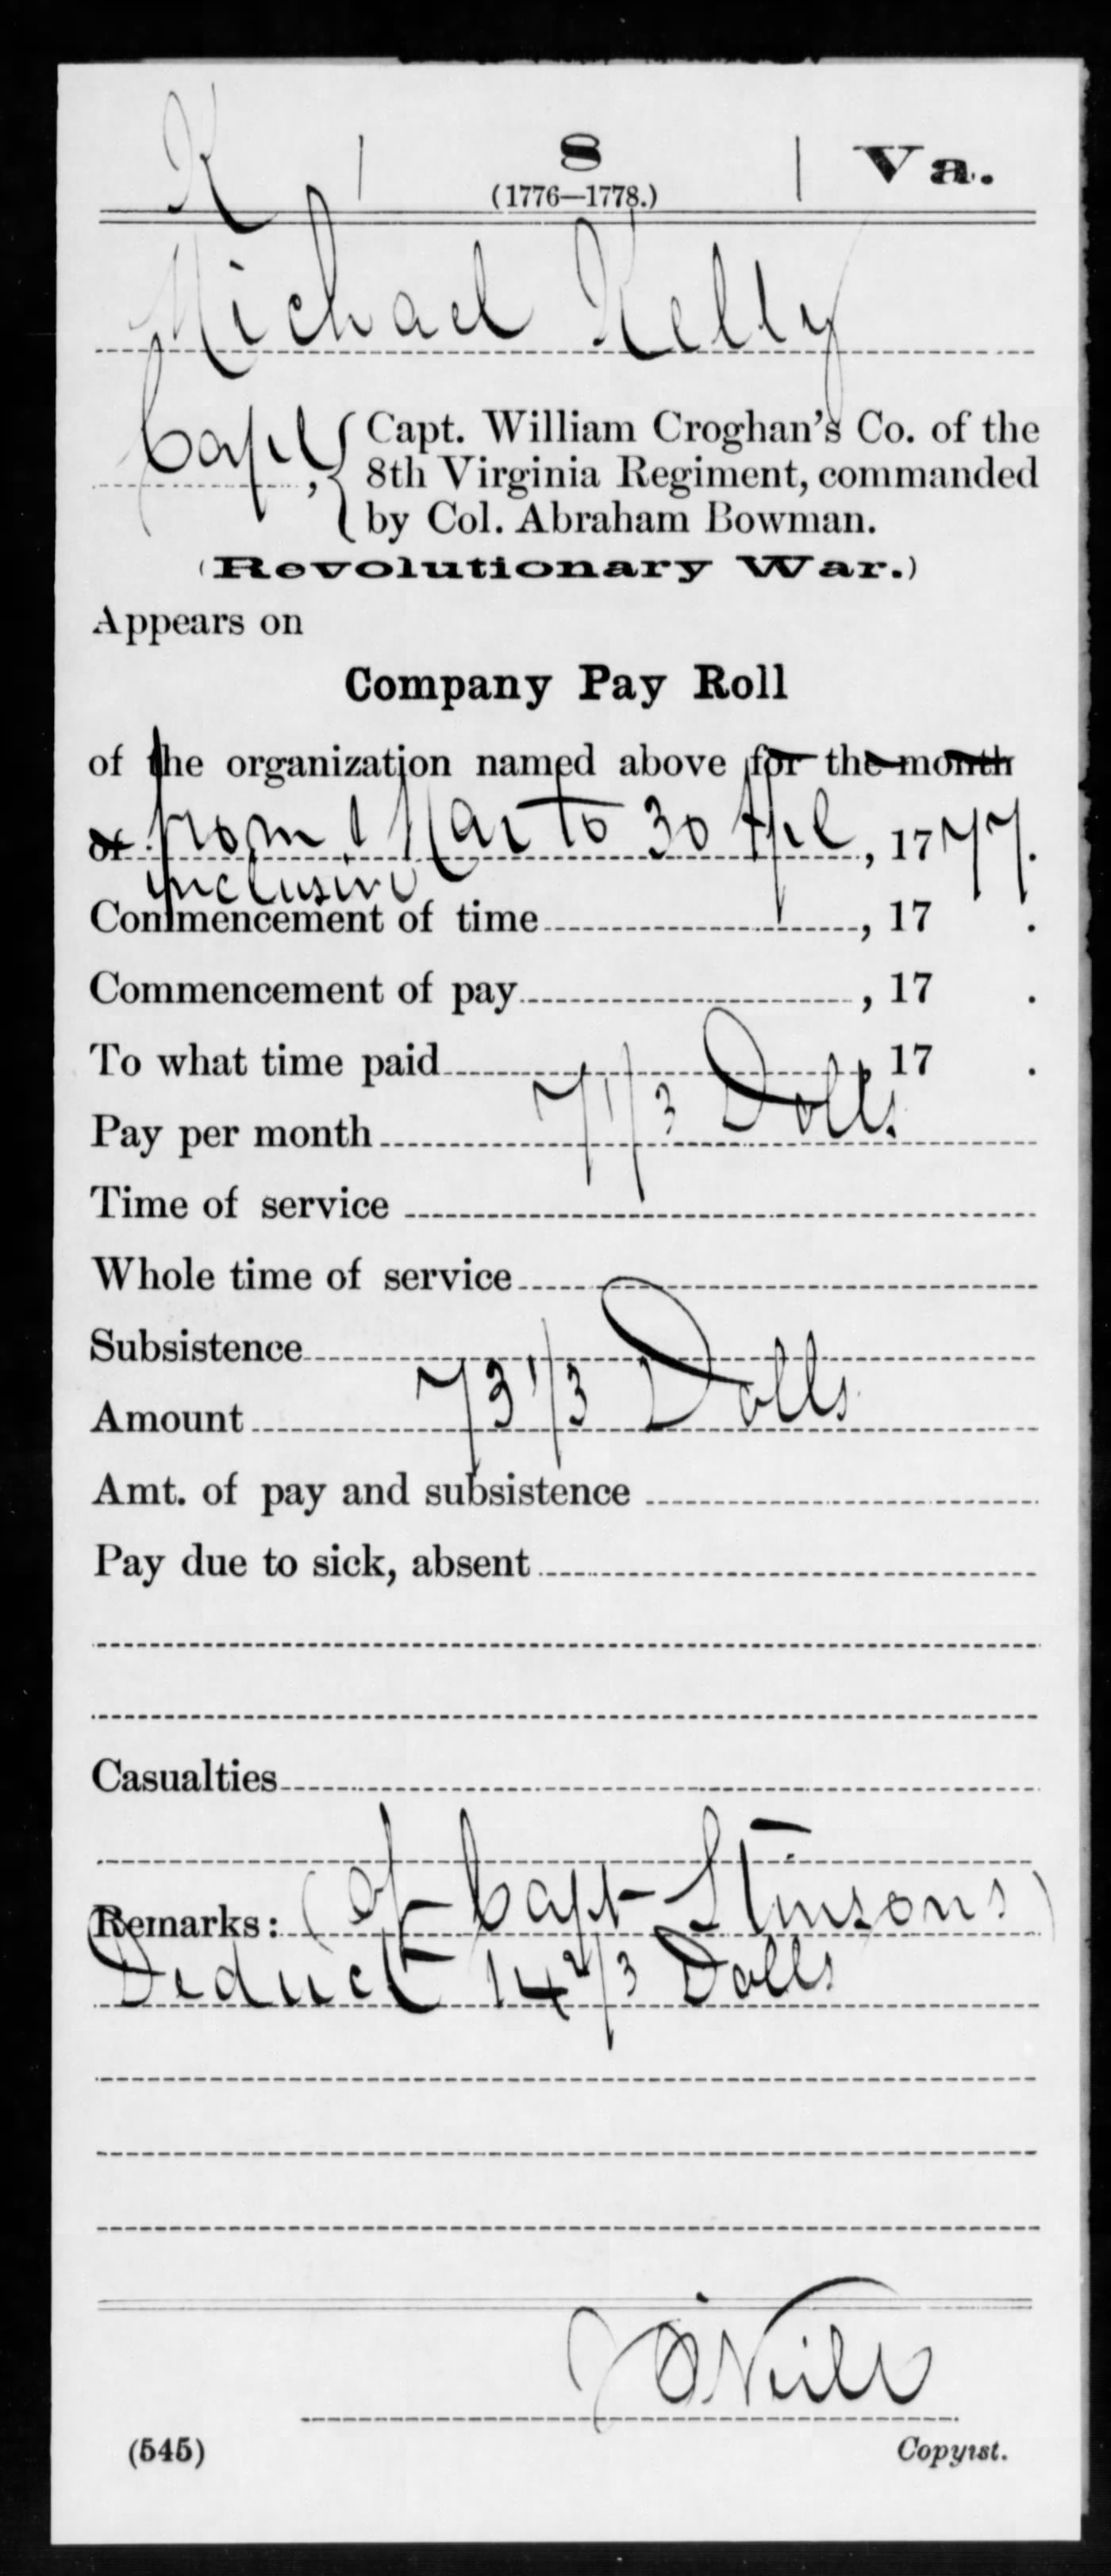 K | 8 | Va.
(1776—1778.)
Michael Kelly
Capt. William Croghan's Co. of the
Corpl, 8th Virginia Regiment, commanded
by Col. Abraham Bowman.
(Revolutionary War.)
Appears on
Company Pay Roll
of the organization named above for the month
of from 1 Mar to 30 Apl, 1777.
inclusive
Commencement of time, 17 .
Commencement of pay, 17 .
To what time paid, 17 .
Pay per month 7 1/3 Dolls
Time of service
Whole time of service
Subsistence
Amount 73 1/3 Dolls
Amt. of pay and subsistence
Pay due to sick, absent
Casualties
Remarks: (of Capt Stinsons)
Deduct 14 2/3 Dolls
J O'Neill
(545) Copyist.